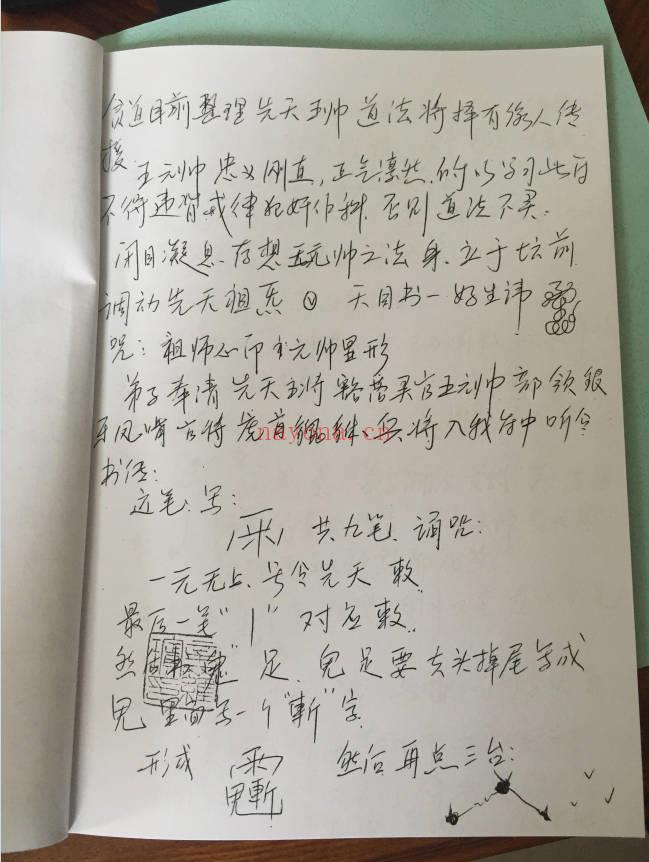 贫道目前整理先天王帅道法将择有缘人传
接 王元帅忠义刚直,正气凛然.所以学习此
不得违背戒律犯奸作科.否则道法不灵.
闭目凝息.存想王元帅之法身.立于坛前
调动先天祖炁 天目书一好生讳
咒:祖师心印王元帅显形
弟子奉请先天主将豁落灵官王元帅部领银
牙凤嘴 兵将入我 中听令
nayona.cn
书符:
运笔.写:
共九笔.诵咒:
一元无上.号令先天 敕.
最后一笔"丨" 对应敕.
然 足.鬼足要去头掉尾写成
里面写一个"斬"字.
形成 然后再点三台: